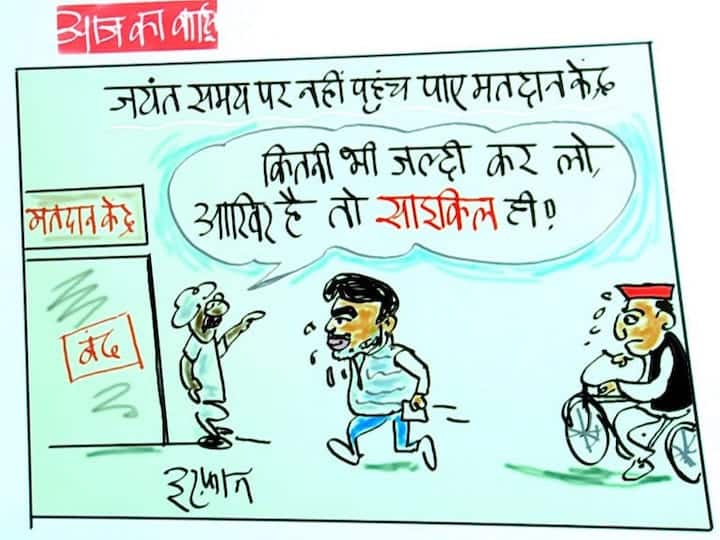 आज का
जयंत समय पर नहीं पहुंच पाए मतदान केंद्र
कितनी भी जल्दी कर लो,
आखिर है तो साइकिल ही!
मतदान केंद्र
बंद
इरफ़ान